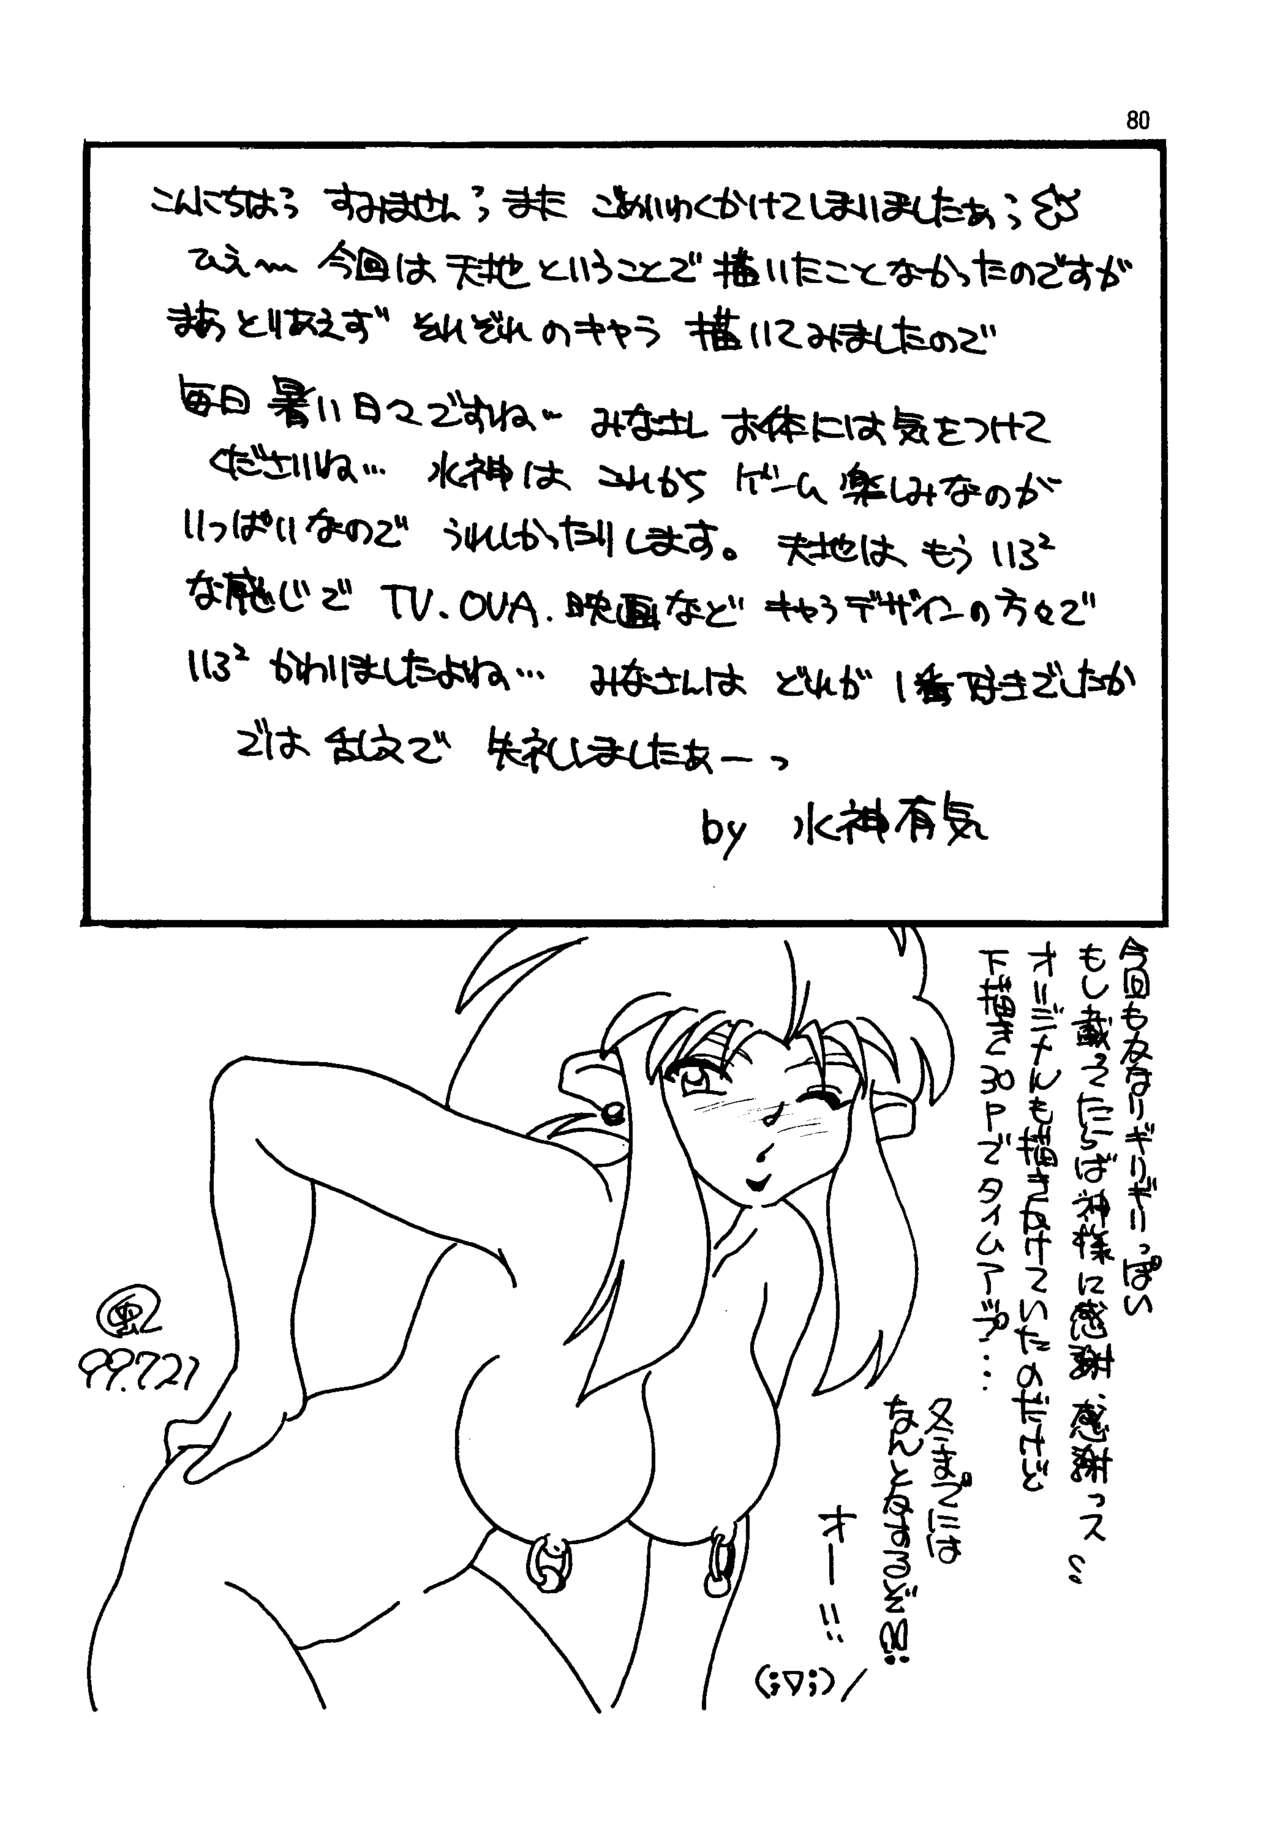 80
こんにちはっ すみませんっ また ごめいわくかけてしまいましたぁっ
ひえ〜 今回は 天地 ということで 描いたことなかったのですが
まあ とりあえず それぞれのキャラ 描いてみましたので
毎日 暑い日々ですね… みなさん お体には気をつけて
くださいね… 水神は これから ゲーム 楽しみなのが
いっぱいなので うれしかったりします。 天地は、もう いろ²
な感じで TV.OVA.映画など キャラデザインの方々で
いろ² かわりましたよね… みなさんは どれが 1番好きでしたか
では 乱文で 失礼しましたぁーっ
by 水神有気
今回もかなりギリギリっぽい
もし載ってたらば神様に感謝、感謝っス
オリジナルも描きかけていたのだけど
下描き30Pでタイムアップ…
冬までには
なんとかするぞ!!
オー!!
(;▽;)/
99.7.21